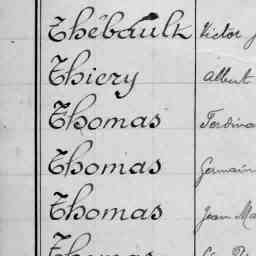 Thébault Victor
Thiery Albert
Thomas
Thomas Germain
Thomas Jean
Thomas